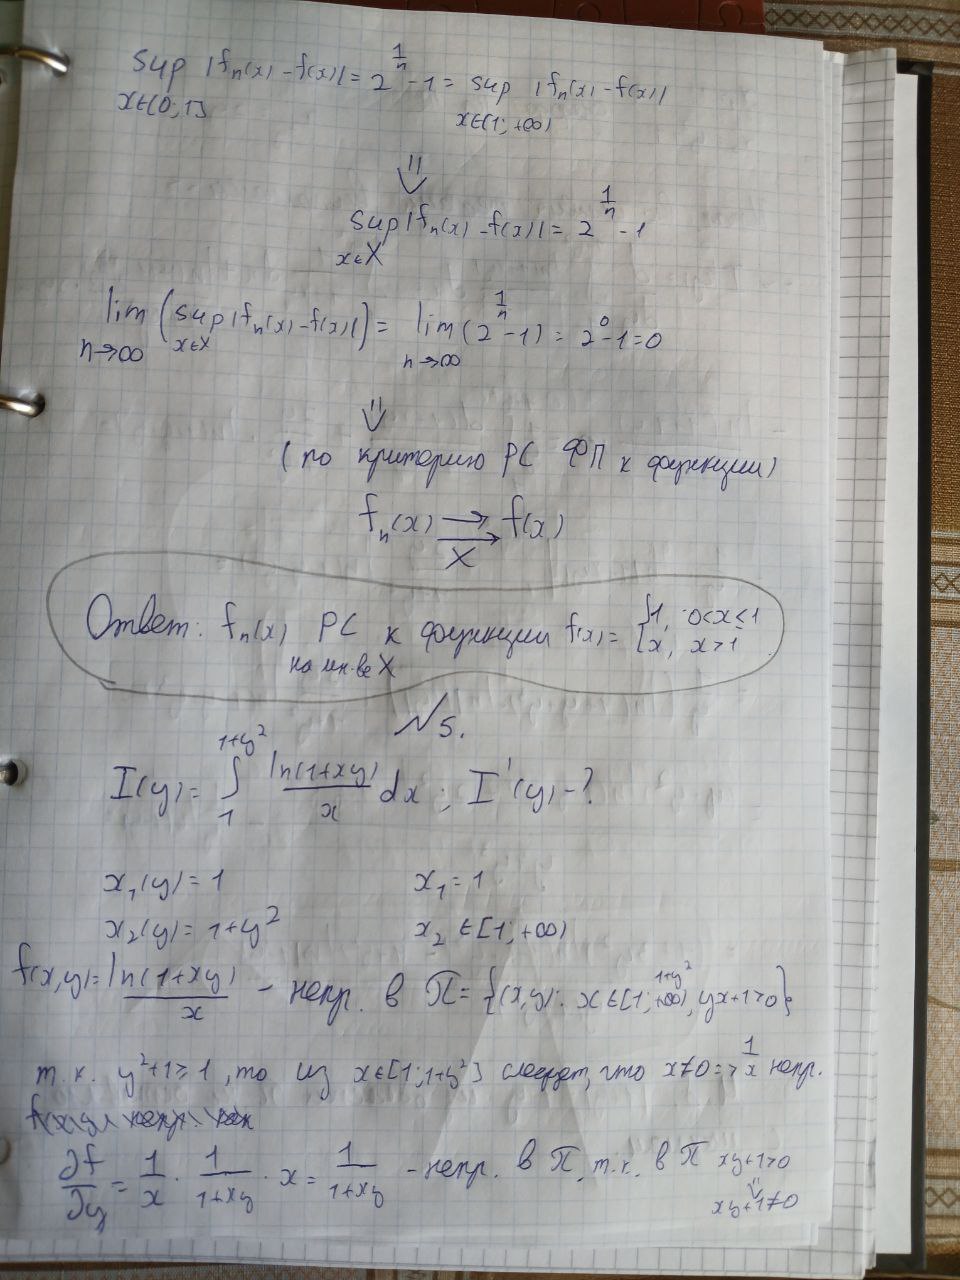 sup |fₙ(x) - f(x)| = 2^(1/n) - 1 = sup |fₙ(x) - f(x)|
x∈(0;1] x∈(1;+∞)
⇓
sup |fₙ(x) - f(x)| = 2^(1/n) - 1
x∈X
lim (sup |fₙ(x) - f(x)|) = lim (2^(1/n) - 1) = 2⁰ - 1 = 0
n→∞ x∈X n→∞
⇓
(по критерию РС ФП к функции)
fₙ(x) ⇉ f(x)
X
Ответ: fₙ(x) РС к функции f(x) = {1, 0<x≤1
на мн-ве X [x, x>1
N5.
I(y) = ∫₁^(1+y²) ln(1+xy)/x dx; I'(y) - ?
x₁(y) = 1 x₁ = 1
x₂(y) = 1+y² x₂ ∈ [1;+∞)
f(x,y) = ln(1+xy)/x - непр. в П = {(x,y): x∈[1; 1+y²), yx+1>0}
т.к. y²+1≥1, то из x∈[1;1+y²] следует, что x≠0 => 1/x непр.
∂f/∂y = 1/x · 1/(1+xy) · x = 1/(1+xy) - непр. в П, т.к. в П xy+1>0
⇓
xy+1≠0